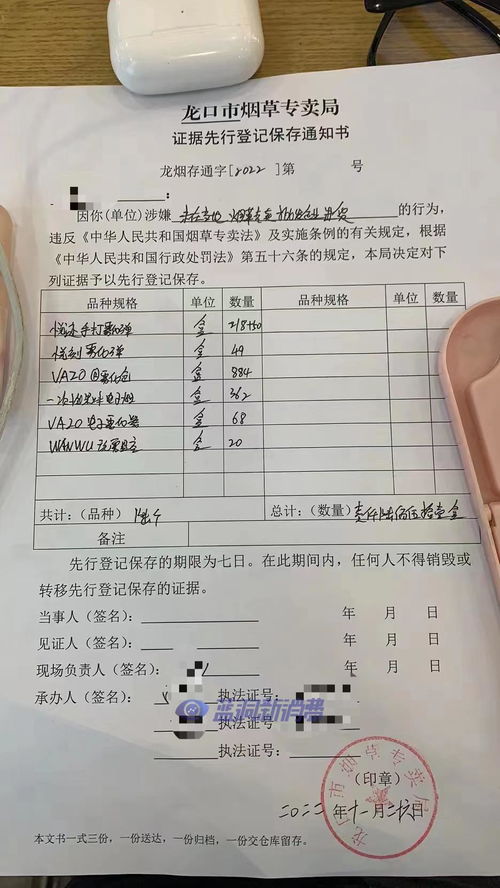 龙口市烟草专卖局
证据先行登记保存通知书
龙烟存通字[2022]第 号
：
因你(单位)涉嫌 的行为，
违反《中华人民共和国烟草专卖法》及实施条例的有关规定，根据
《中华人民共和国行政处罚法》第五十六条的规定，本局决定对下
列证据予以先行登记保存。
品种规格 单位 数量 品种规格 单位 数量
盒 218+50
悦刻雾化弹 盒 49
盒 884
盒 362
VAZO电子雾化器 盒 68
WANWU 盒 20
共计：（品种） 总计：（数量）
备注
先行登记保存的期限为七日。在此期间内，任何人不得销毁或
转移先行登记保存的证据。
当事人（签名）： 年 月 日
见证人（签名）： 年 月 日
现场负责人（签名）： 年 月 日
承办人（签名）： 执法证号：
蓝洞新消费
执法证号：
执法证号：
（印章）
二〇二二年十一月二十六日
龙口市烟草专卖局
本文书一式三份，一份送达，一份归档，一份交仓库留存。